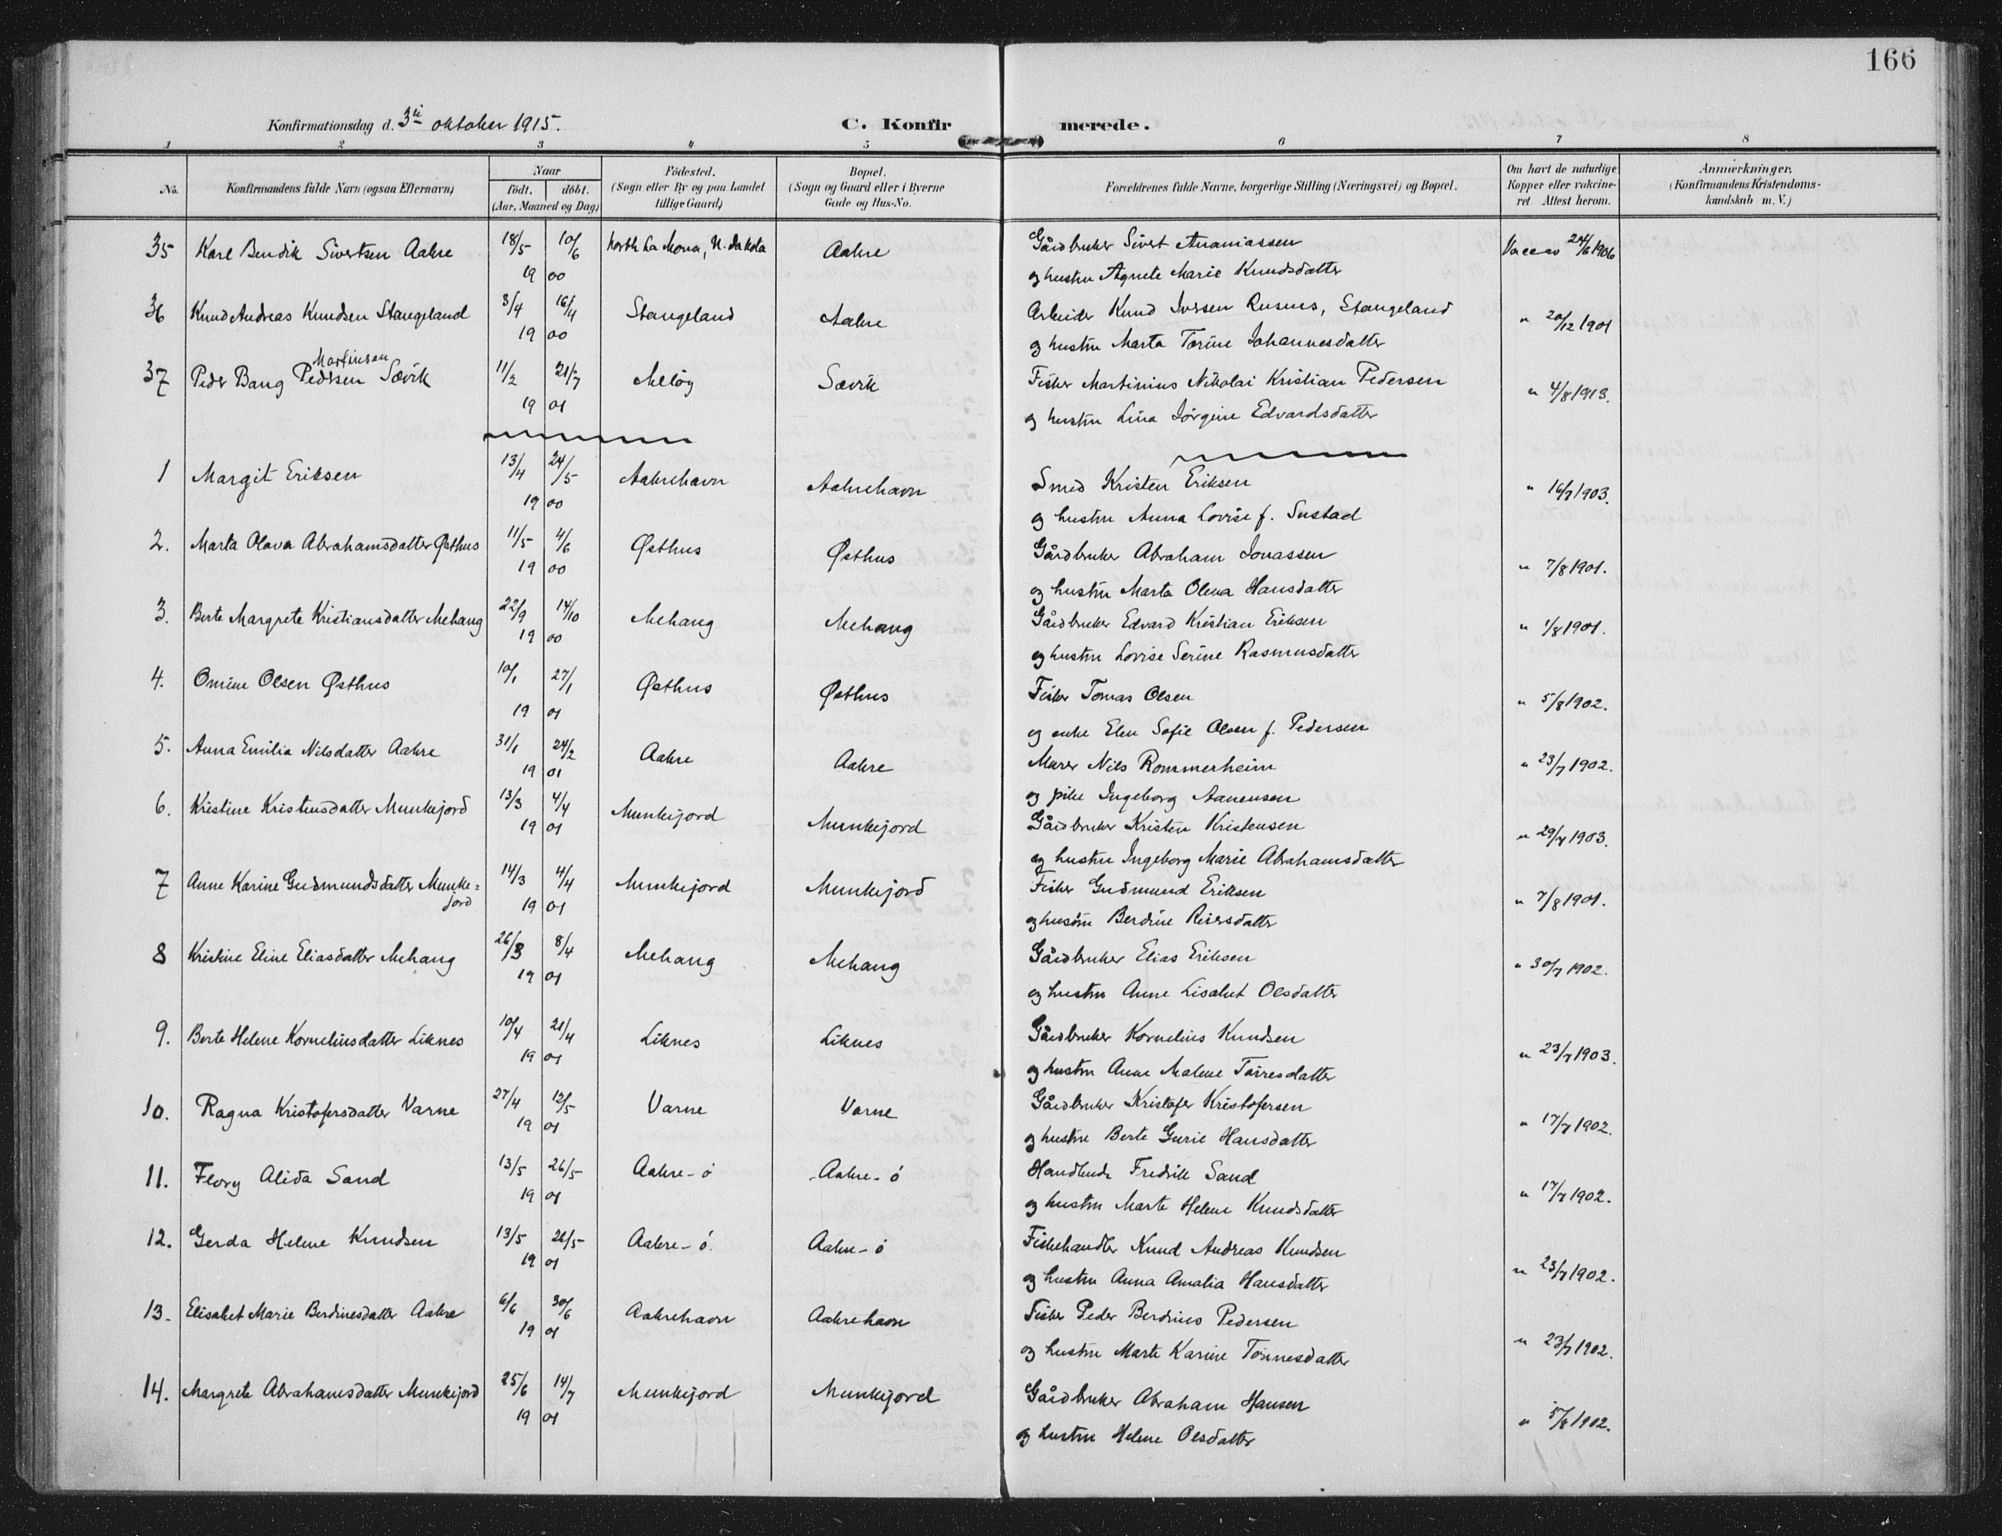 166
Konfirmationsdag d. 3die oktober 1915.
C. Konfirmerede.
1 2 3 4 5 6 7 8
No. Konfirmandens fulde Navn (ogsaa Efternavn) Naar født. døbt. (Aar, Maaned og Dag) Fødested. (Sogn eller By og paa Landet tillige Gaard) Bopæl. (Sogn og Gaard eller i Byerne Gade og Hus-No. Forældrenes fulde Navne, borgerlige Stilling (Næringsvei) og Bopæl. Om havt de naturlige Kopper eller vakcineret Attest herom. Anmærkninger. (Konfirmandens Kristendomskundskab m. V.)
35 Karl Bendik Sivertsen Aakre 18/5 10/6 North La Mona, N. Dakola Aakre Gårdbruker Sivert Ananiassen Vaccav 24/6 1906
19 00 og hustru Agnete Marie Knudsdatter
36 Knud Andreas Knudsen Stangeland 3/4 16/4 Stangeland Aakre Arbeider Knud Iversen Rusnes, Stangeland " 20/12 1901
19 00 og hustru Marta Torine Johannesdatter
Martinsen
37 Peder Bang Pedersen Sævik 11/2 21/7 Meløy Sævik Fisker Martinius Nikolai Kristian Pedersen " 4/8 1913.
19 01 og hustru Lina Jørgine Edvardsdatter
1 Margit Eriksen 13/4 24/5 Aakrehavn Aakrehavn Smed Kristen Eriksen " 16/7 1903.
19 00 og hustru Anna Lovise f. Sustad
2. Marta Olava Abrahamsdatter Østhus 11/5 4/6 Østhus Østhus Gårdbruker Abraham Jonassen " 7/8 1901.
19 00 og hustru Marta Olena Hansdatter
3. Berte Margrete Kristiansdatter Mehang 22/9 14/10 Mehang Mehang Gårdbruker Edvard Kristian Eriksen " 1/8 1901.
19 00 og hustru Lovise Serine Rasmusdatter
4. Omine Olsen Østhus 10/1 27/1 Østhus Østhus Fisker Tomas Olsen " 5/8 1902.
19 01 og enke Elen Sofie Olsen f. Pedersen
5. Anna Emilia Nilsdatter Aakre 31/1 24/2 Aakre Aakre Murer Nils Rommerheim " 23/7 1902.
19 01 og pike Ingeborg Aanensen
6. Kristine Kristensdatter Munkejord 13/3 4/4 Munkejord Munkejord Gårdbruker Kristen Kristensen " 29/7 1903.
19 01 og hustru Ingeborg Marie Abrahamsdatter
7 Anne Karine Gudmundsdatter Munke= 14/3 4/4 Munkejord Munkejord Fisker Gudmund Eriksen " 7/8 1901.
jord 19 01 og hustru Berdine Reiersdatter
8 Kristine Eline Eliasdatter Mehang 26/3 8/4 Mehang Mehang Gårdbruker Elias Eriksen " 30/7 1902.
19 01 og hustru Anne Lisabet Olsdatter
9. Berte Helene Kornelinsdatter Liknes 10/4 21/4 Liknes Liknes Gårdbruker Kornelius Knudsen " 23/7 1903.
19 01 og hustru Anne Malene Torresdatter
10. Ragna Kristofersdatter Varne 27/4 12/5 Varne Varne Gårdbruker Kristofer Kristofersen " 17/7 1902.
19 01 og hustru Berte Gurie Hansdatter
11. Flory Alida Sand 13/5 26/5 Aakre-ö Aakre-ö Handlende Fredrik Sand " 17/7 1902.
19 01 og hustru Marte Helene Knudsdatter
12. Gerda Helene Knudsen 13/5 26/5 Aakre-ö. Aakre-ö Fiskehandler Knud Andreas Knudsen " 23/7 1902.
19 01 og hustru Anna Amalia Hansdatter
13. Elisabet Marie Berdinesdatter Aakre 6/6 30/6 Aakrehavn Aakrehavn Fisker Peder Berdines Pedersen " 23/7 1902.
19 01 og hustru Marte Karine Tønnesdatter
14. Margrete Abrahamsdatter Munkejord 25/6 14/7 Munkejord Munkejord Gårdbruker Abraham Hansen " 5/8 1902.
19 01 og hustru Helene Olsdatter